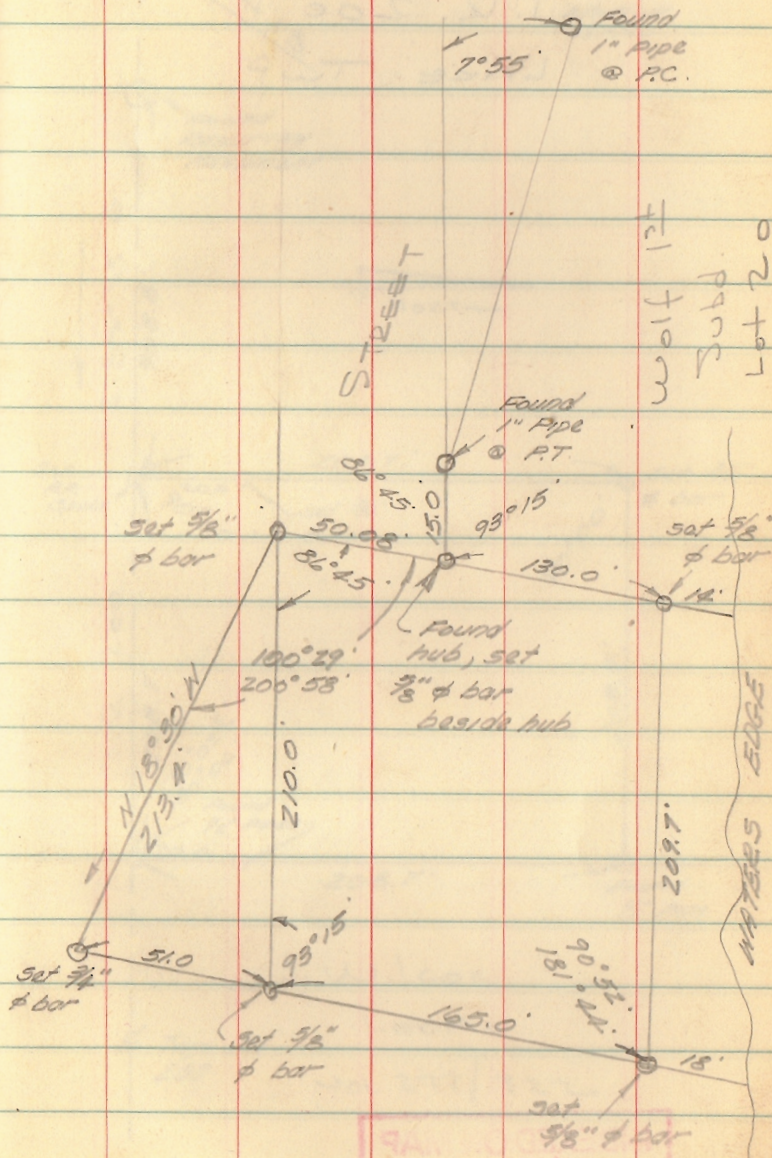 Found
1" Pipe
@ P.C.
7°55'
STREET
Wolf 1st
Subd
Lot 20
Found
1" Pipe
@ P.T.
86°45'
15.0
93°15'
set 5/8"
φ bar
50.08'
86°45'
130.0'
set 5/8"
φ bar
14'
Found
hub, set
5/8" φ bar
beside hub
100°29'
200°58'
N 18°30' W
213.2'
210.0'
209.7'
WATERS EDGE
set 3/4"
φ bar
51.0
93°15'
set 5/8"
φ bar
165.0'
90°52'
181°44'
18'
set
5/8" φ bar